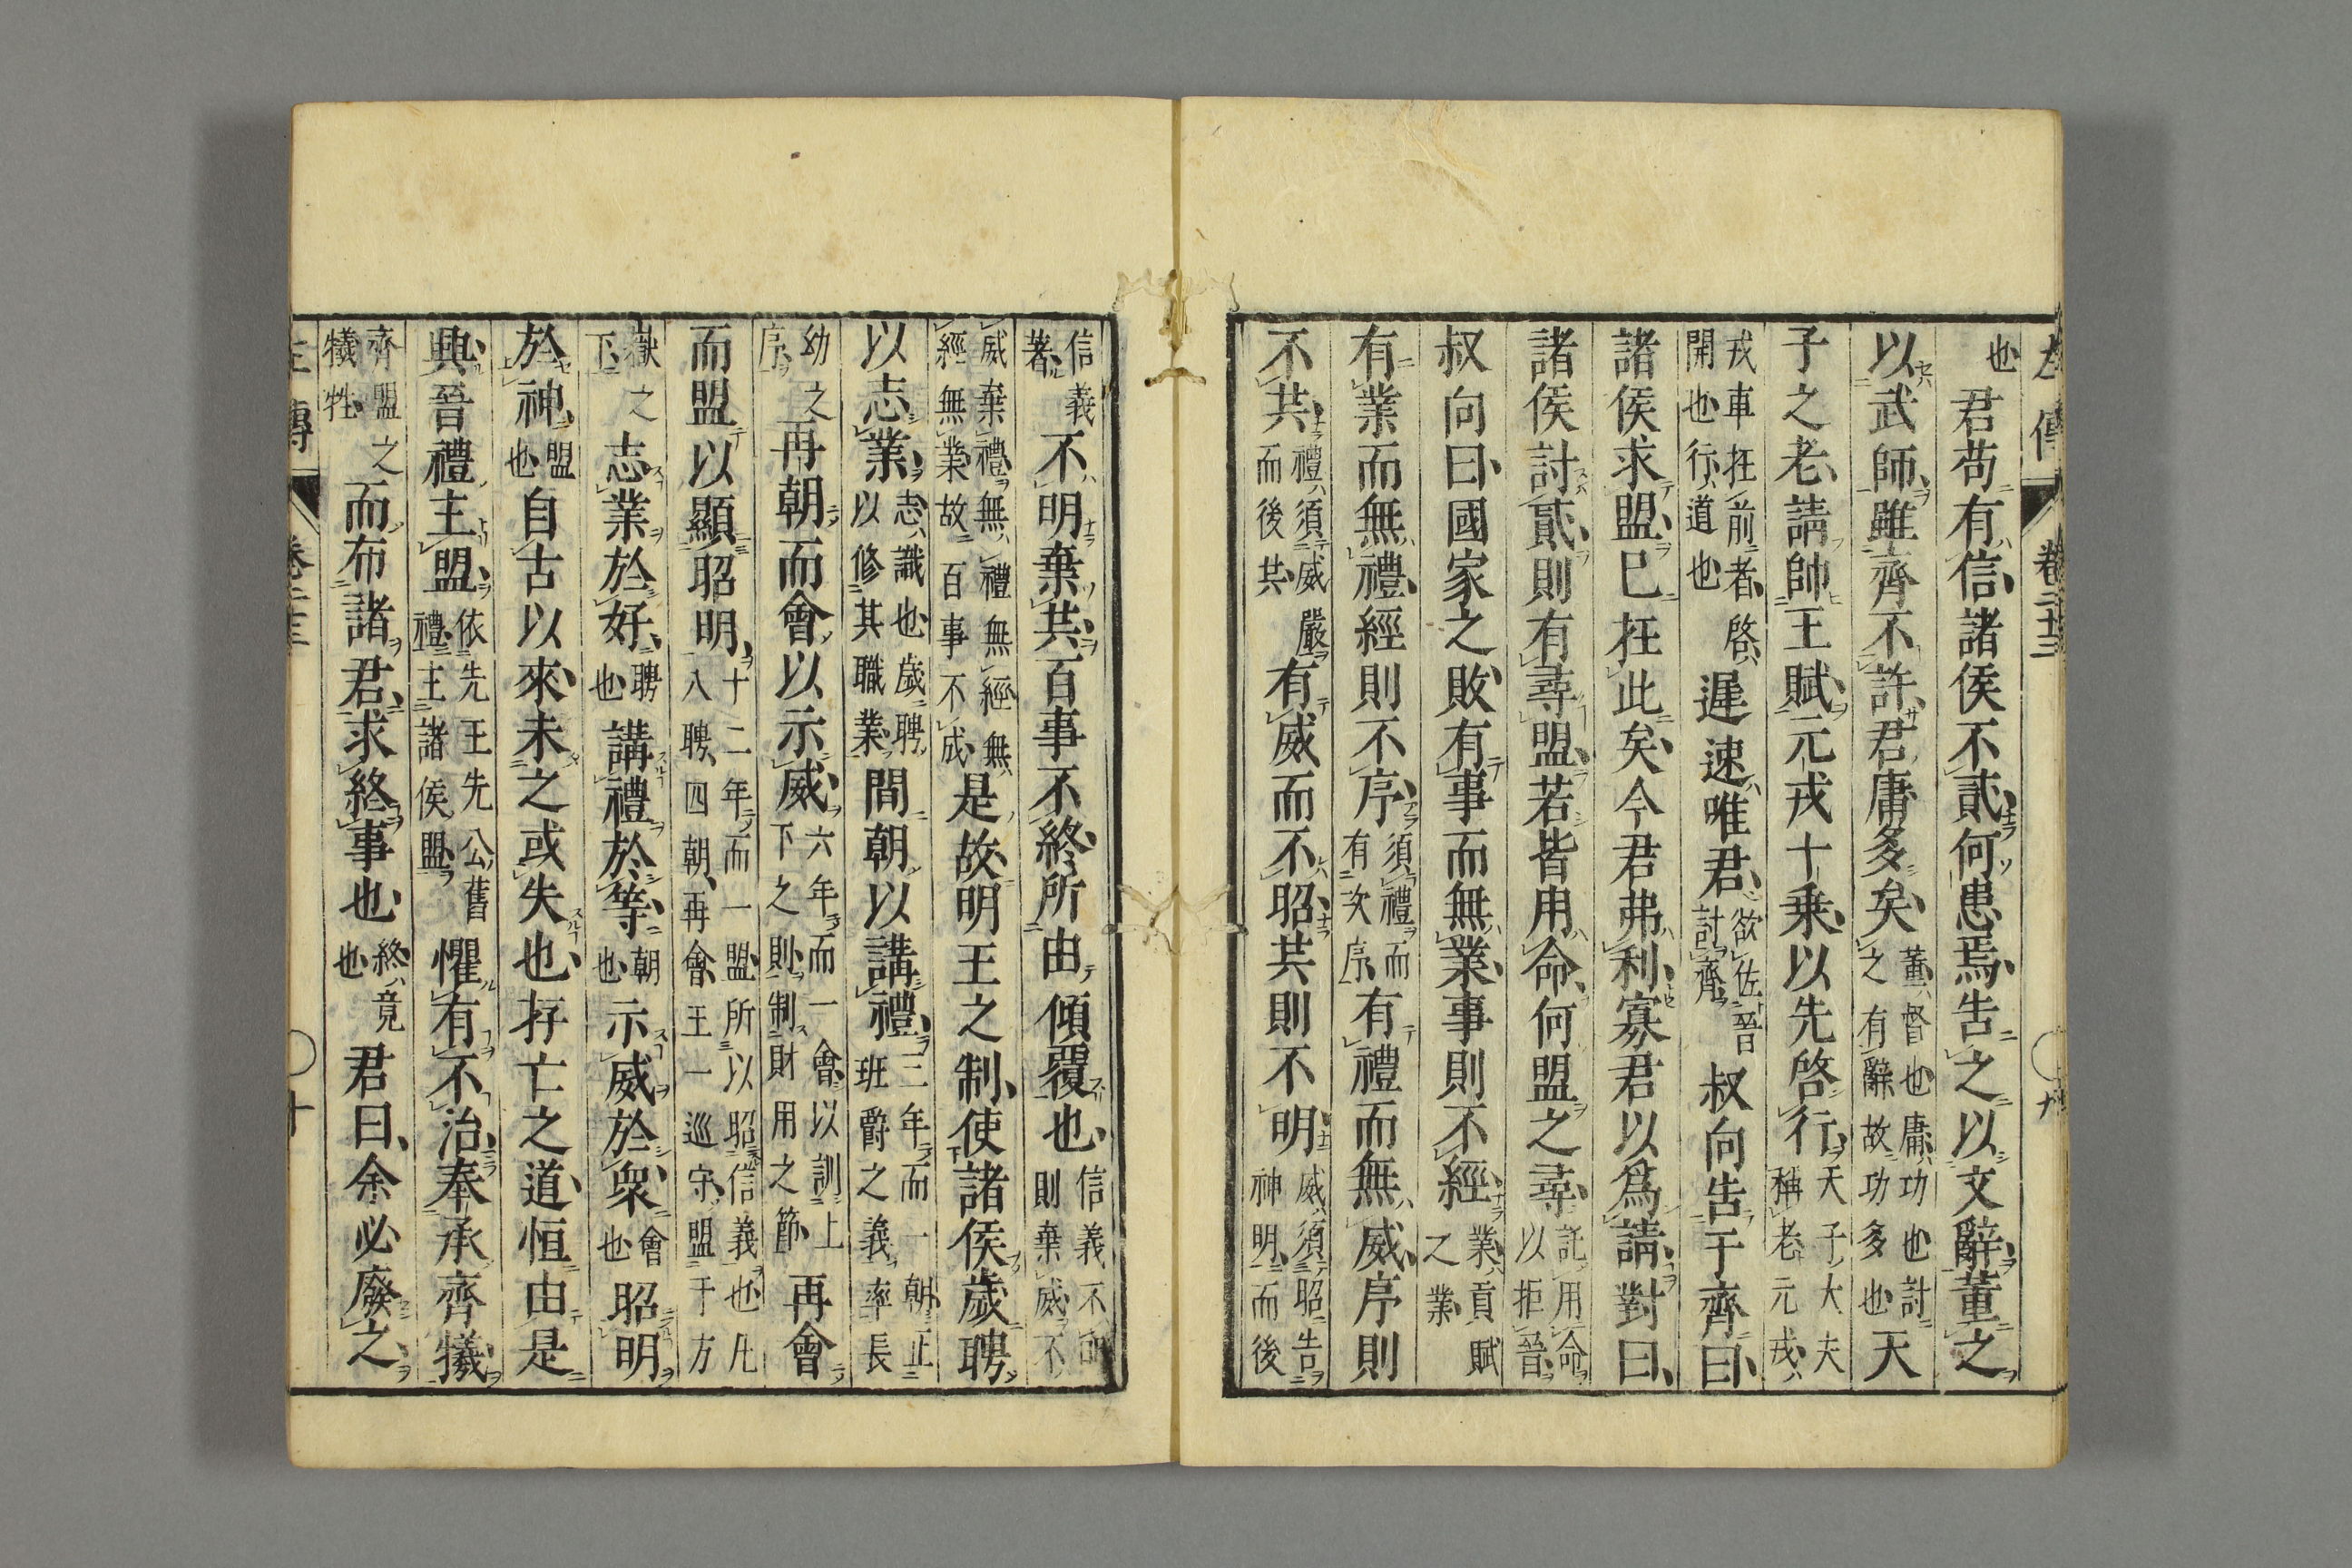 左傳 卷二十三 九
也君苟有信諸侯不貳何患焉告之以文辭董之
以武師雖齊不許君庸多矣董督也庸功也討之有辭故功多也天
子之老請帥王賦元戎十乘以先啓行天子大夫稱老元戎
戎車在前者啓開也行道也遲速唯君欲佐晉討齊叔向告于齊曰
諸侯求盟已在此矣今君弗利寡君以爲請對曰
諸侯討貳則有尋盟若皆用命何盟之尋託用命以拒晉
叔向曰國家之敗有事而無業事則不經業貢賦之業
有業而無禮經則不序須禮而有次序有禮而無威序則
不共禮須威嚴而後共有威而不昭共則不明威須昭告神明而後
信義著不明棄共百事不終所由傾覆也信義不明則棄威不
威棄禮無禮無經無經無業故百事不成是故明王之制使諸侯歲聘
以志業志識也歲聘以修其職業間朝以講禮三年而一朝正班爵之義率長
幼之序再朝而會以示威六年而一會以訓上下之則制財用之節再會
而盟以顯昭明十二年而一盟所以昭信義也凡八聘四朝再會王一巡守盟于方
嶽之下志業於好聘也講禮於等朝也示威於衆會也昭明
於神盟也自古以來未之或失也存亡之道恒由是
興晉禮主盟依先王先公舊禮主諸侯盟懼有不治奉承齊犧
齊盟之犧牲而布諸君求終事也終竟也君曰余必廢之
左傳 卷二十三 十